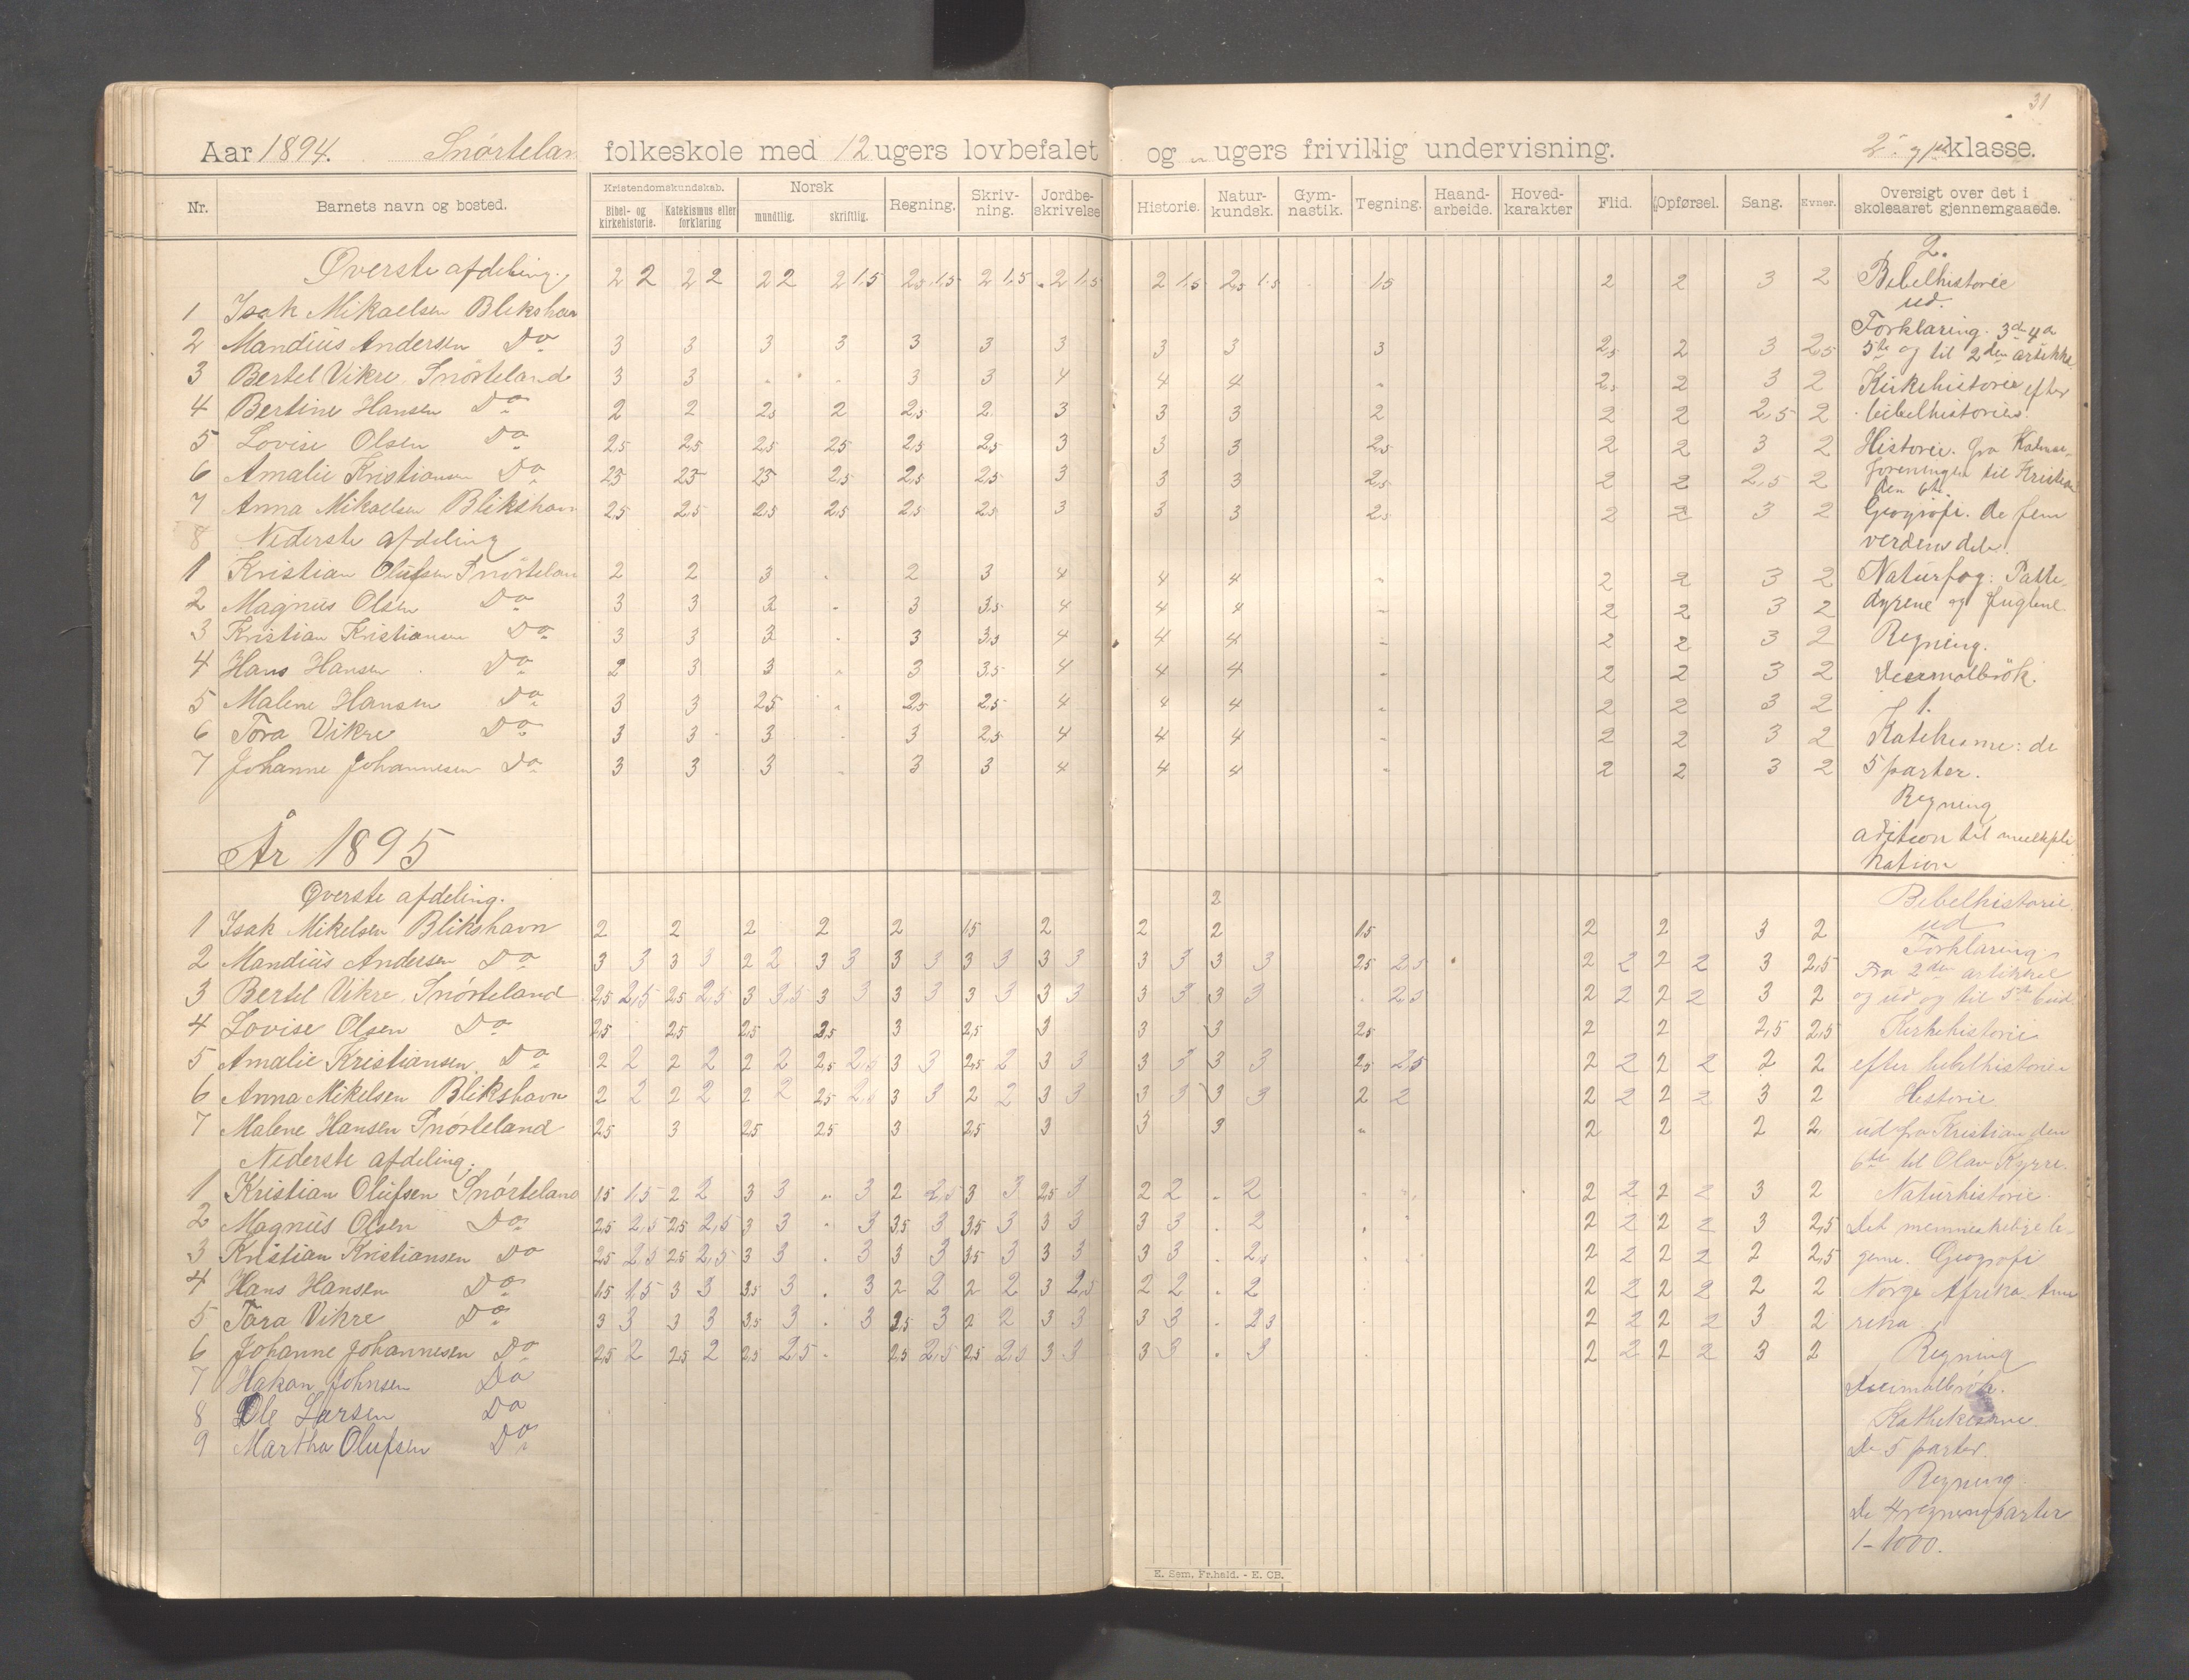 31
Aar 1894. Snørtelan folkeskole med 12 ugers lovbefalet og " ugers frivillig undervisning. 2. klasse.
Nr. Barnets navn og bosted. Kristendomskundskab. Bibel- og kirkehistorie. Katekismus eller forklaring Norsk mundtlig. skriftlig. Regning. Skriv-ning. Jordbe-skrivelse Historie. Natur-kundsk. Gym-nastik. Tegning. Haand-arbeide. Hoved-karakter Flid. Opførsel. Sang. Evner. Oversigt over det i skoleaaret gjennemgaaede.
Øverste afdeling.
1 Isak Mikaelsen Blikshavn 2 2 2 2 2 2 2 1,5 2,5 1,5 2 1,5 2 1,5 2 1,5 2,5 1,5 1,5 2 2 3 2
2 Mandius Andersen Do 3 3 3 3 3 3 3 3 3 3 2,5 2 3 2,5
3 Bertel Vikre Snørteland 3 3 " " 3 3 4 4 4 " 2,5 2 3 2
4 Bertine Hansen Do 2 2 2,5 2 2,5 2 3 3 3 2 2 2 2,5 2
5 Lovise Olsen Do 2,5 2,5 2,5 2,5 2,5 2,5 3 3 3 2,5 2 2 3 2
6 Amalie Kristiansen Do 2,5 2,5 2,5 2,5 2,5 2,5 3 3 3 2,5 2 2 2,5 2
7 Anna Mikaelsen Blikshavn 2,5 2,5 2,5 2,5 2,5 2,5 3 3 3 2,5 2 2 3 2
8 Nederste afdeling
1 Kristian Olufsen Snørtelan 2 2 3 " 2 3 4 4 4 " 2 2 3 2
2 Magnus Olsen Do 3 3 3 " 3 3,5 4 4 4 " 2 2 3 2
3 Kristian Kristiansen Do 3 3 3 " 3 3,5 4 4 4 " 2 2 3 2
4 Hans Hansen Do 2 3 3 " 3 3,5 4 4 4 " 2 2 3 2
5 Malene Hansen Do 3 3 2,5 " 2,5 2,5 4 4 4 " 2 2 3 2
6 Tora Vikre Do 3 3 3 " 3 2,5 4 4 4 " 2 2 3 2
7 Johanne Johannesen Do 3 3 3 " 3 3 4 4 4 " 2 2 3 2
2.
Bibelhistorie
ud.
Forklaring. 3die 4de
5te og til 2den artikkel
Kirkehistorie efter
bibelhistorien.
Historie. fra Kalmar-
foreningen til Kristian
den 6te.
Geografi. De fem
verdensdele.
Naturfag: Patte-
dyrene og fuglene.
Regning.
Decimalbrøk.
1.
Katekisme: de
5 parter.
Regning
adition til multipli
kation
År 1895
Øverste afdeling.
1 Isak Mikelsen Blikshavn 2 2 2 2 2 1,5 2 2 2 2 1,5 2 2 3 2
2 Mandius Andersen Do 3 3 3 3 2 2 3 3 3 3 3 3 3 3 3 3 3 3 2,5 2,5 2 2 2 2 3 2,5
3 Bertel Vikre Snørteland 2,5 2,5 2,5 2,5 3 3,5 3 3 3 3 3 3 3 3 3 3 3 3 " 2,5 2 2 2 2 3 2
4 Lovise Olsen Do 2,5 2,5 2,5 2,5 3 2,5 3 3 3 2,5 2 2 2,5 2,5
5 Amalie Kristiansen Do 2 2 2 2 2 2 2,5 2,5 3 3 2,5 2 3 3 3 3 3 3 2,5 2,5 2 2 2 2 2 2
6 Anna Mikelsen Blikshavn 2 2 2 2 2 2 2,5 2,5 3 3 2 2 3 3 3 3 3 3 2 2 2 2 2 2 3 2
7 Malene Hansen Snørteland 2,5 3 2,5 2,5 3 2,5 3 3 3 " 2 2 2 2
Nederste afdeling.
1 Kristian Olufsen Snørteland 1,5 1,5 2 2 3 3 " 3 2 2,5 3 3 2,5 3 2 2 " 2 2 2 2 2 3 2
2 Magnus Olsen Do 2,5 2,5 2,5 2,5 3 3 " 3 3,5 3 3,5 3 3 3 3 3 " 2 2 2 2 2 3 2,5
3 Kristian Kristiansen Do 2,5 2,5 2,5 2,5 3 3 " 3 3 3 3,5 3 3 3 3 3 " 2,5 2 2 2 2 2 2,5
4 Hans Hansen Do 1,5 1,5 3 3 3,5 3 " 3 2 2 2 2 3 2,5 2 2 " 2 2 2 2 2 2 2
5 Tora Vikre Do 3 3 3 3 3,5 3 " 3 2,5 3 2 2 3 3 3 3 " 2 3 2 2 2 2 3 2
6 Johanne Johannesen Do 2,5 2 2,5 2 2,5 2,5 " 2,5 2,5 2,5 2,5 3 3 3 3 " 3 2 2 2 2 3 2
7 Hakon Johnsen Do
8 Ole Larsen Do
9 Martha Olufsen Do
Bibelhistorie
ud
Forklaring
Fra 2den artikkel
og ud og til 5te bud.
Kirkehistorie
efter bibelhistorien
Historie
ud fra Kristian den
6te til Olav Kyrre.
Naturhistorie.
Det menneskelige le-
geme. Geografi
Norge Afrika Ame
rika.
Regning
Decimalbrøk.
Kathekisme
De 5 parter.
Regning.
De 4 regningsarter
1-1000.
E. Sem, Fr.hald. - E. CB.